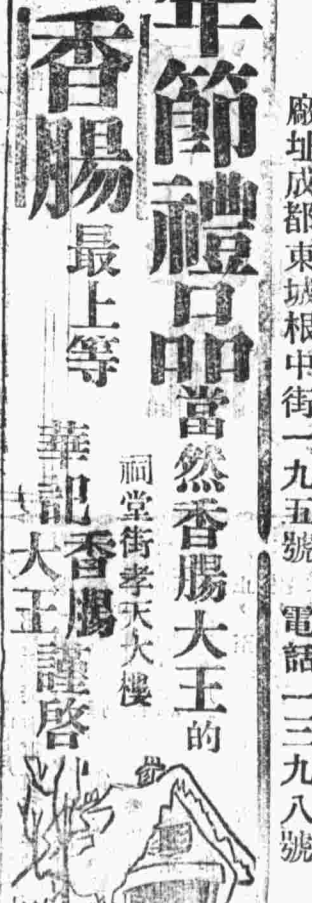 廠址成都東城根中街一九五號 電話一三九八號
年節禮品當然香腸大王的
香腸最上等
祠堂街孝天大樓
華記香腸大王謹啓